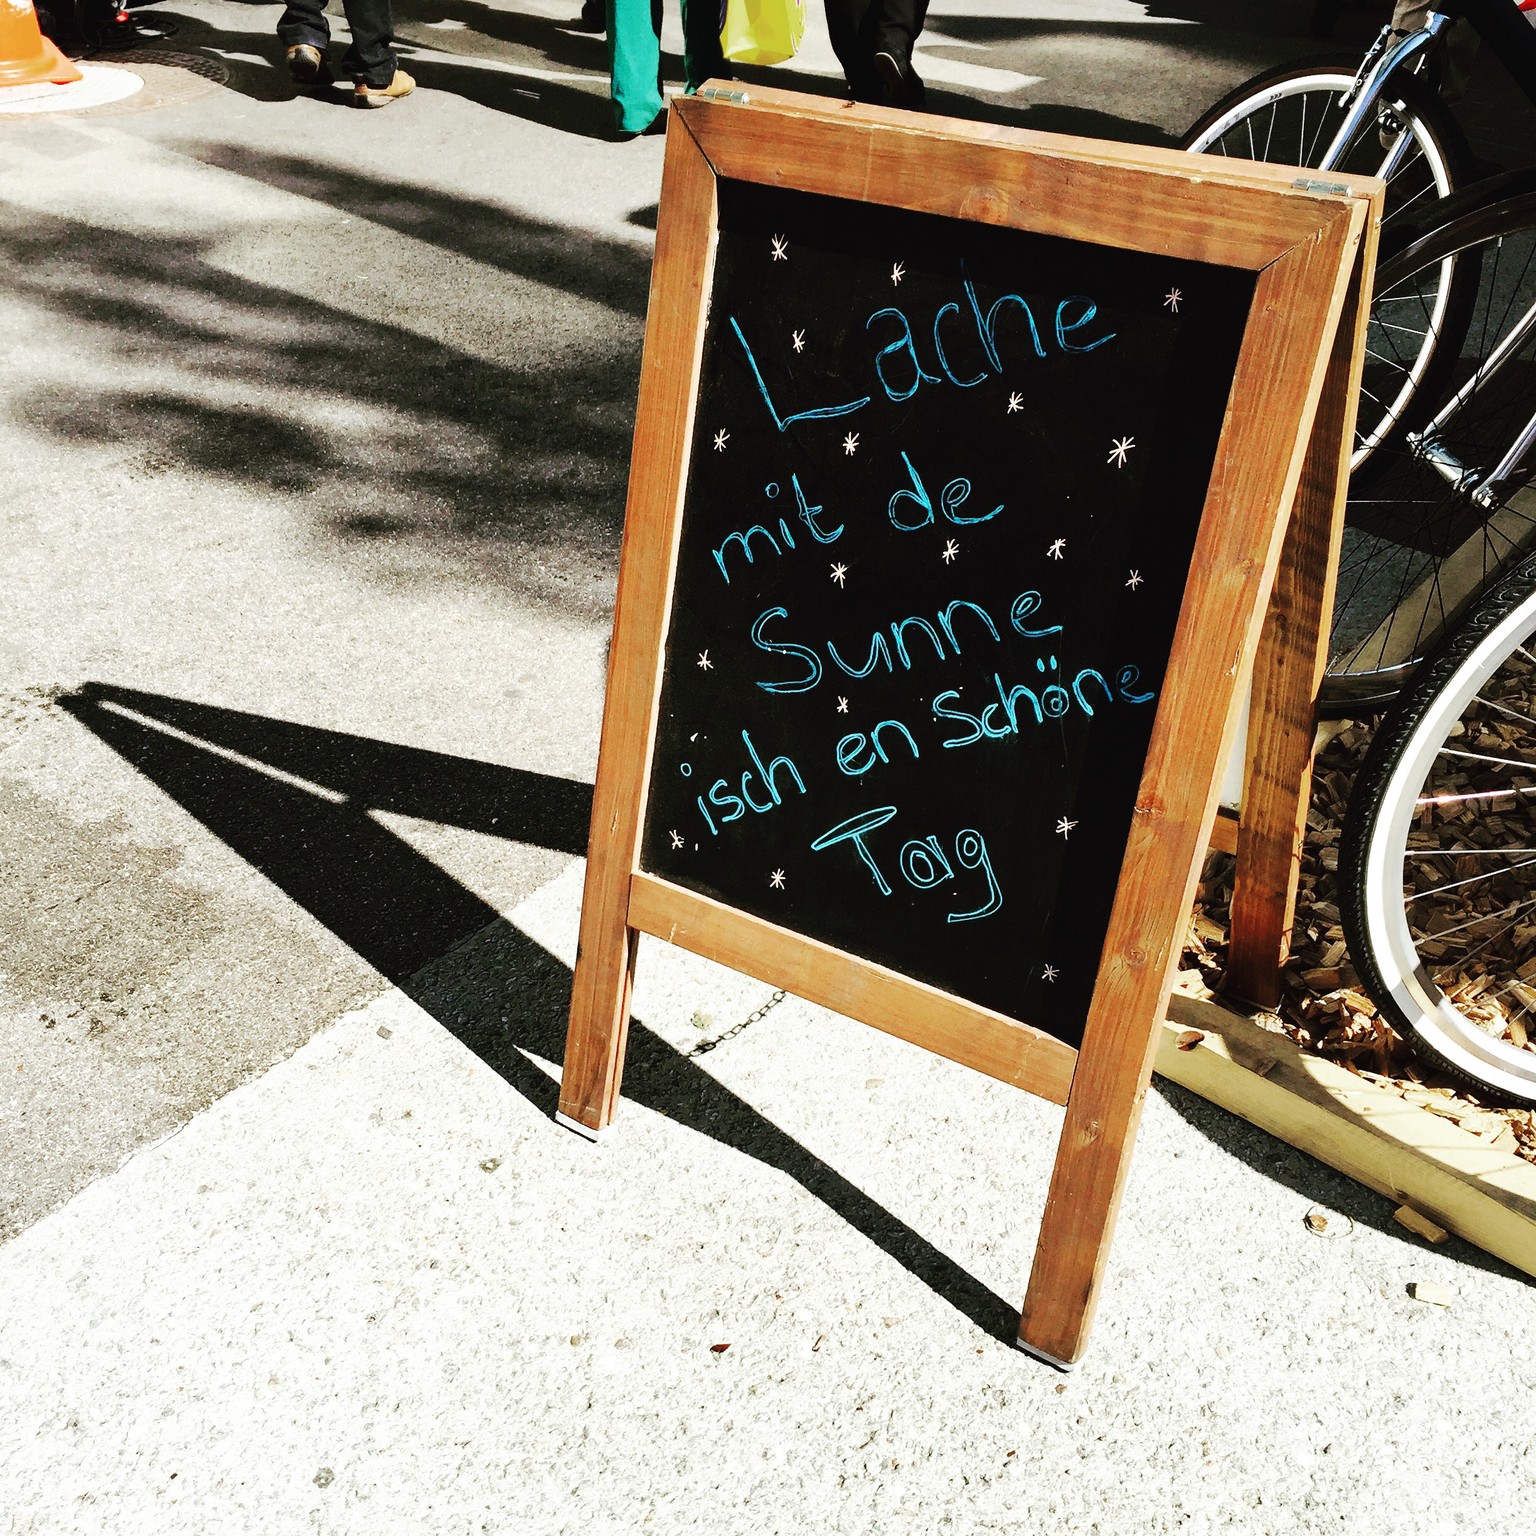 Lache
mit de
Sunne
isch en Schöne
Tag